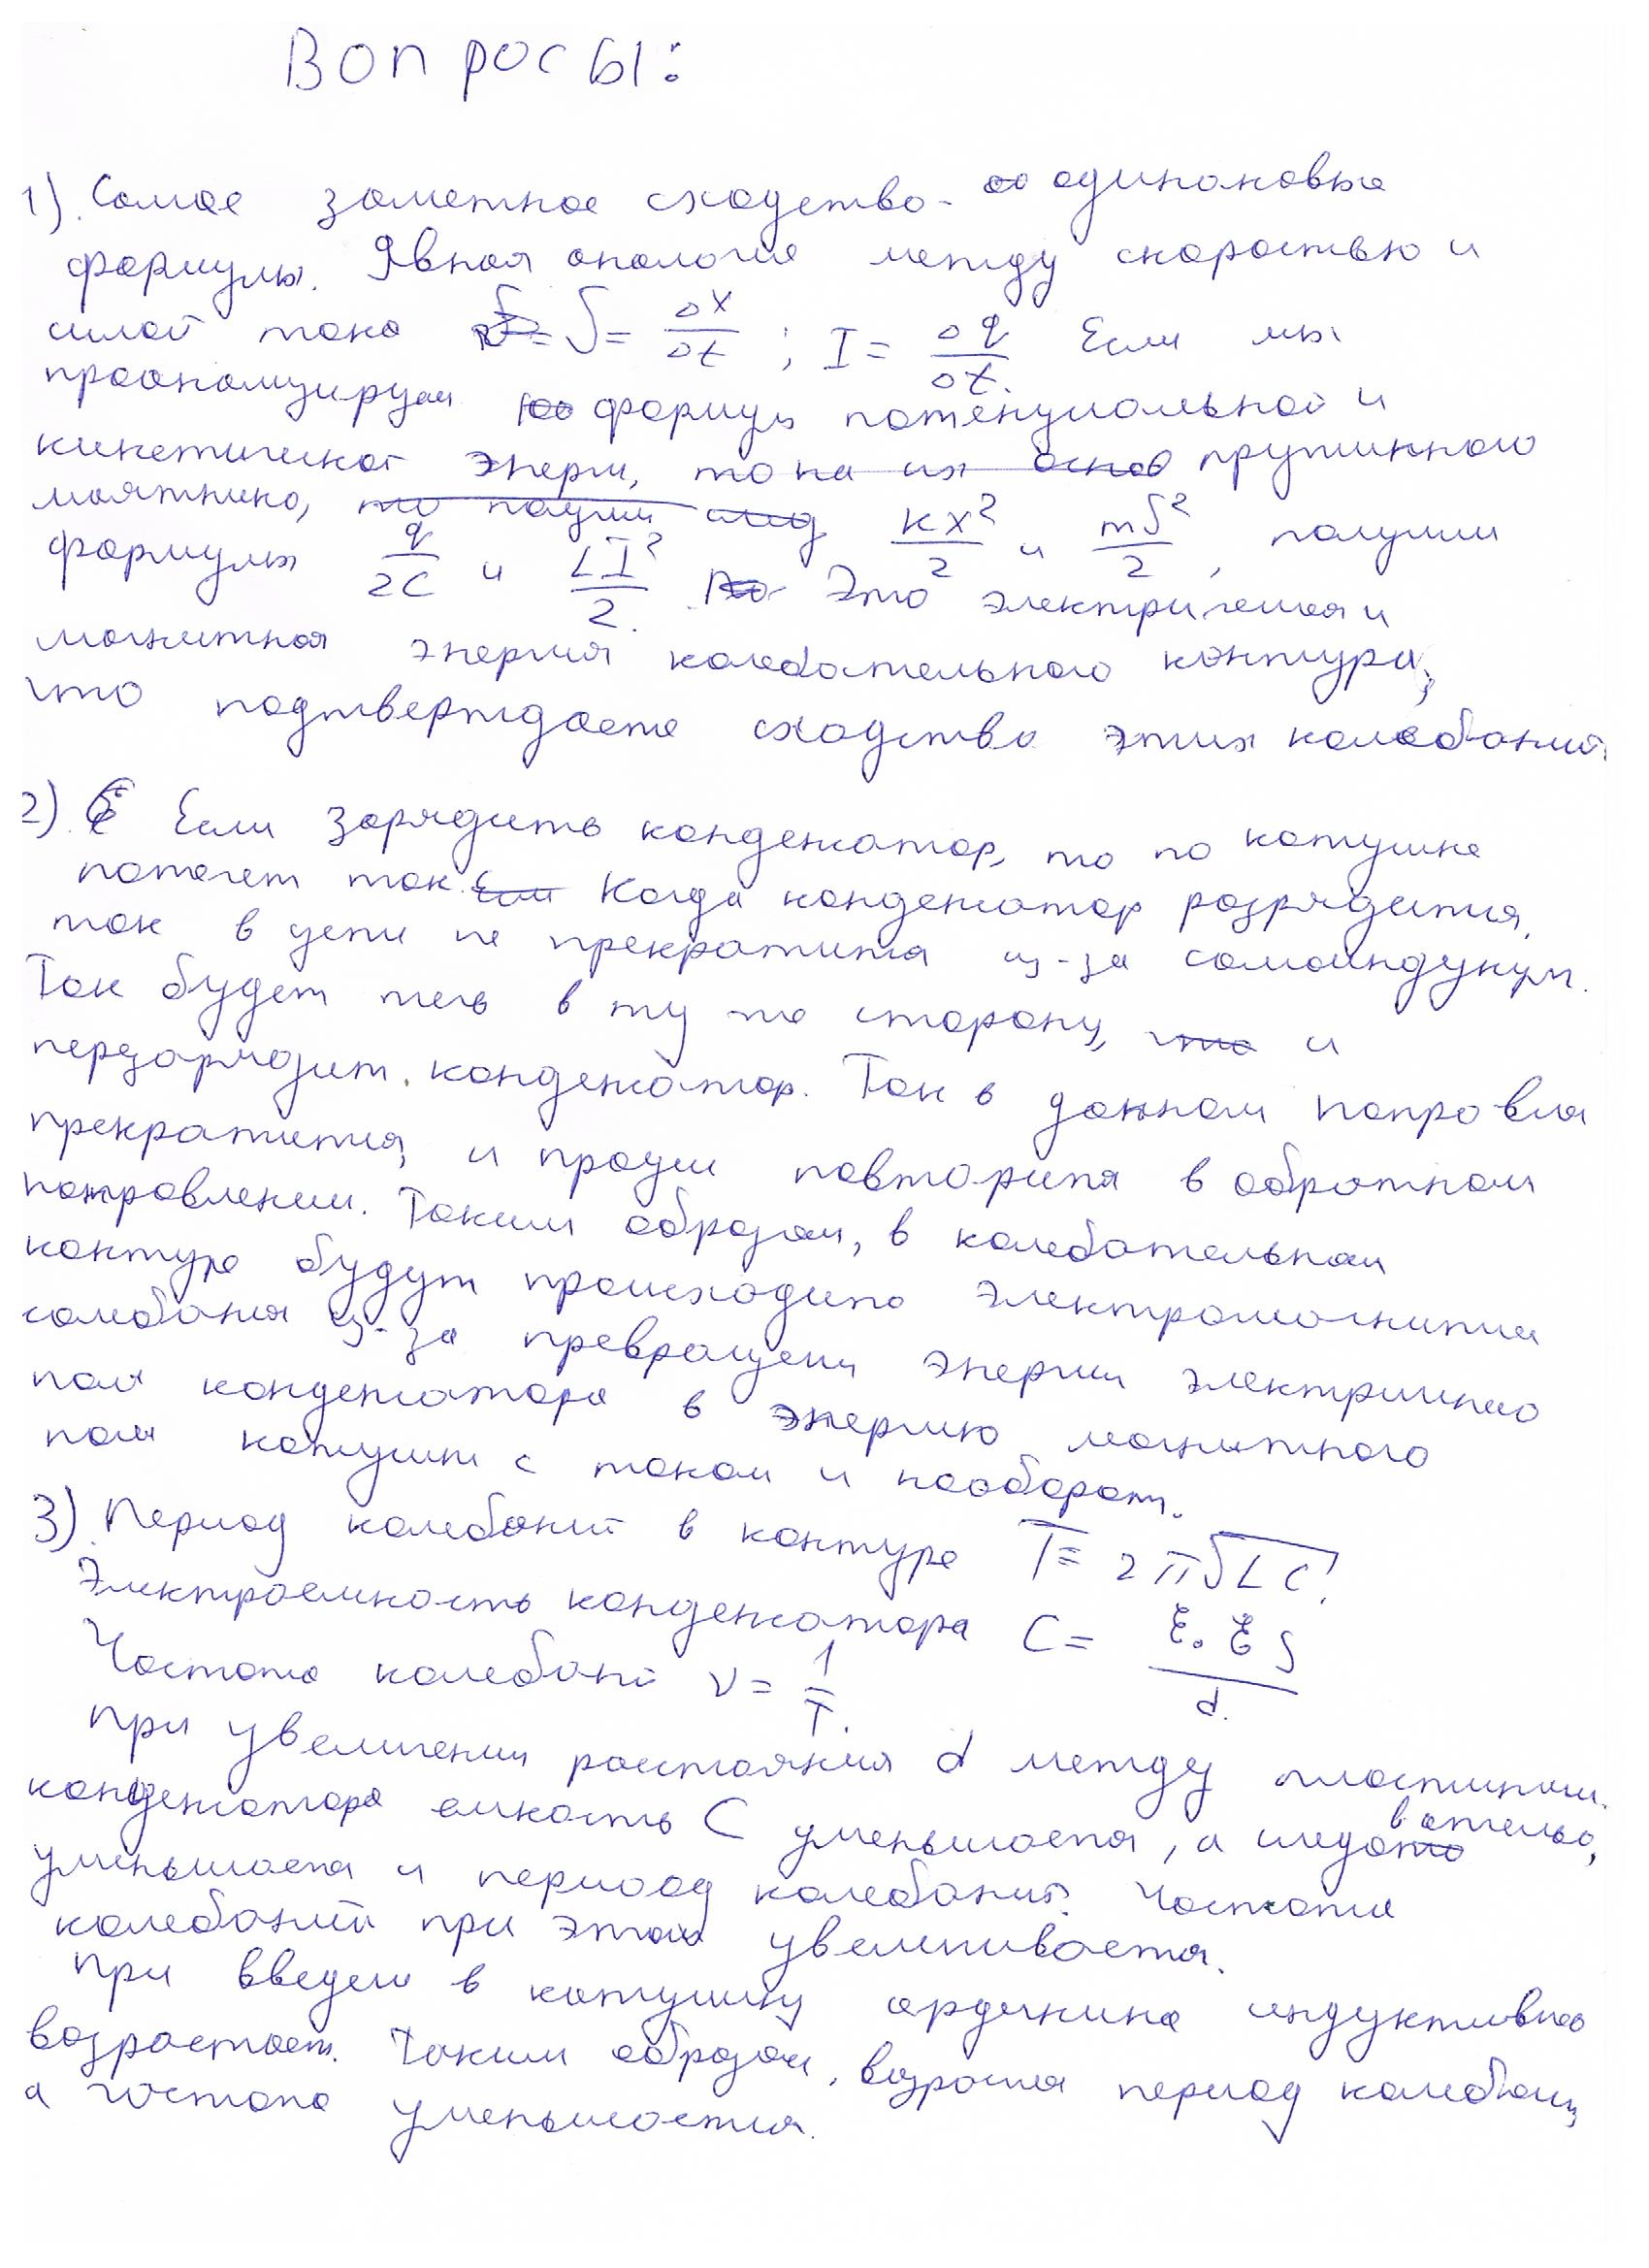 Вопросы:
1). Самое заметное сходство - одинаковые
формулы. Явная аналогия между скоростью и
силой тока υ = Δx/Δt ; I = Δq/Δt. Если мы
проанализируем формулы потенциальной и
кинетической энергии, пружинного
маятника, kx²/2 и mυ²/2, получим
формулы q/2C и LI²/2. Это электрическая и
магнитная энергия колебательного контура,
что подтверждает сходство этих колебаний.
2). Если зарядить конденсатор, то по катушке
потечет ток. Когда конденсатор разрядится,
ток в цепи не прекратится из-за самоиндукции.
Ток будет течь в ту же сторону, и
перезарядит конденсатор. Ток в данном направлен
прекратится, и процесс повторится в обратном
направлении. Таким образом, в колебательном
контуре будут происходить электромагнитные
колебания из-за превращения энергии электрического
поля конденсатора в энергию магнитного
поля катушки с током и наоборот.
3). Период колебаний в контуре T = 2π√LC.
Электроемкость конденсатора C = ε₀εS/d.
Частота колебаний ν = 1/T.
При увеличении расстояния d между пластинами
конденсатора емкость C уменьшается, а следовательно,
уменьшается и период колебаний. Частота
колебаний при этом увеличивается.
При введении в катушку сердечника индуктивность
возрастает. Таким образом, возрастает период колебаний,
а частота уменьшается.